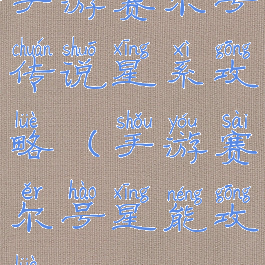 手游赛尔号
chuán shuō xīng xì gōng
传说星系攻
lüè shǒu yóu sài
略（手游赛
ěr hào xīng néng gōng
尔号星能攻
lüè